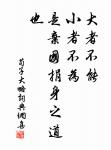 大者不能
小者不為
是棄國捐身之道
也
荀子大略詞典網集